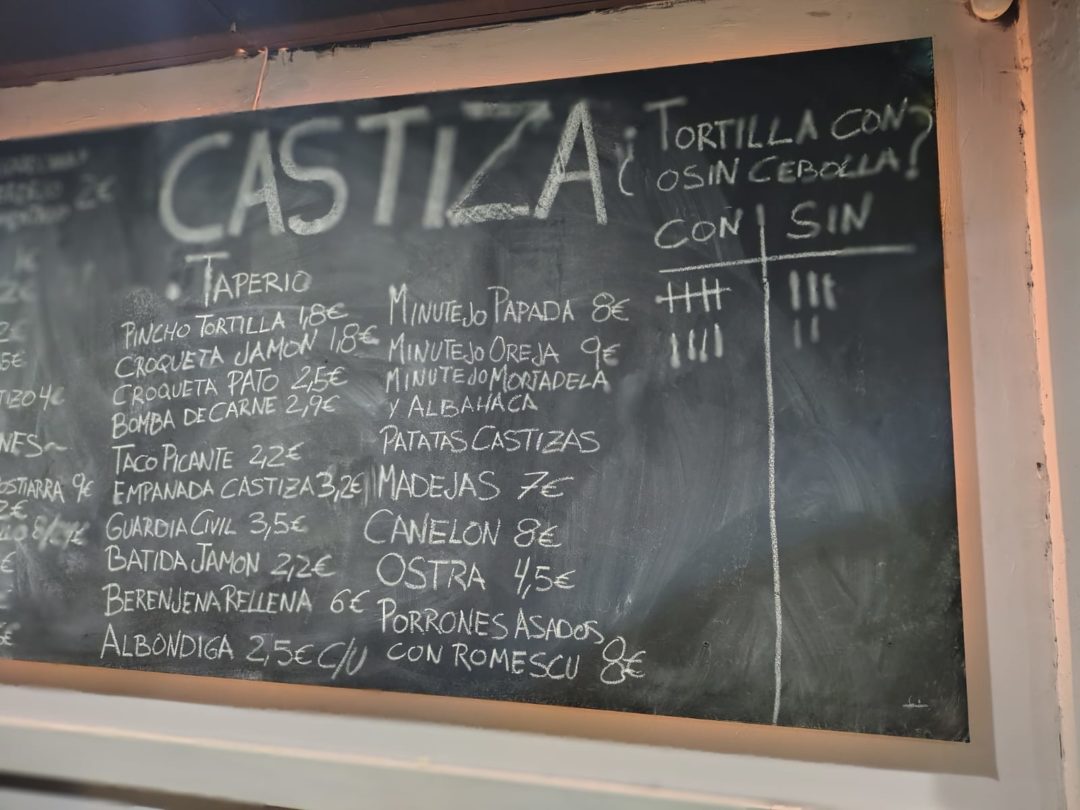 CASTIZA
¿TORTILLA CON
O SIN CEBOLLA?
CON SIN
. TAPERIO
PINCHO TORTILLA 1,8€
CROQUETA JAMON 1,8€
CROQUETA PATO 2,5€
BOMBA DE CARNE 2,9€
TACO PICANTE 2,2€
EMPANADA CASTIZA 3,2€
GUARDIA CIVIL 3,5€
BATIDA JAMON 2,2€
BERENJENA RELLENA 6€
ALBONDIGA 2,5€ C/U
MINUTEJO PAPADA 8€
MINUTEJO OREJA 9€
MINUTEJO MORTADELA
Y ALBAHACA
PATATAS CASTIZAS
MADEJAS 7€
CANELON 8€
OSTRA 4,5€
PORRONES ASADOS
CON ROMESCU 8€
2€
4€
9€